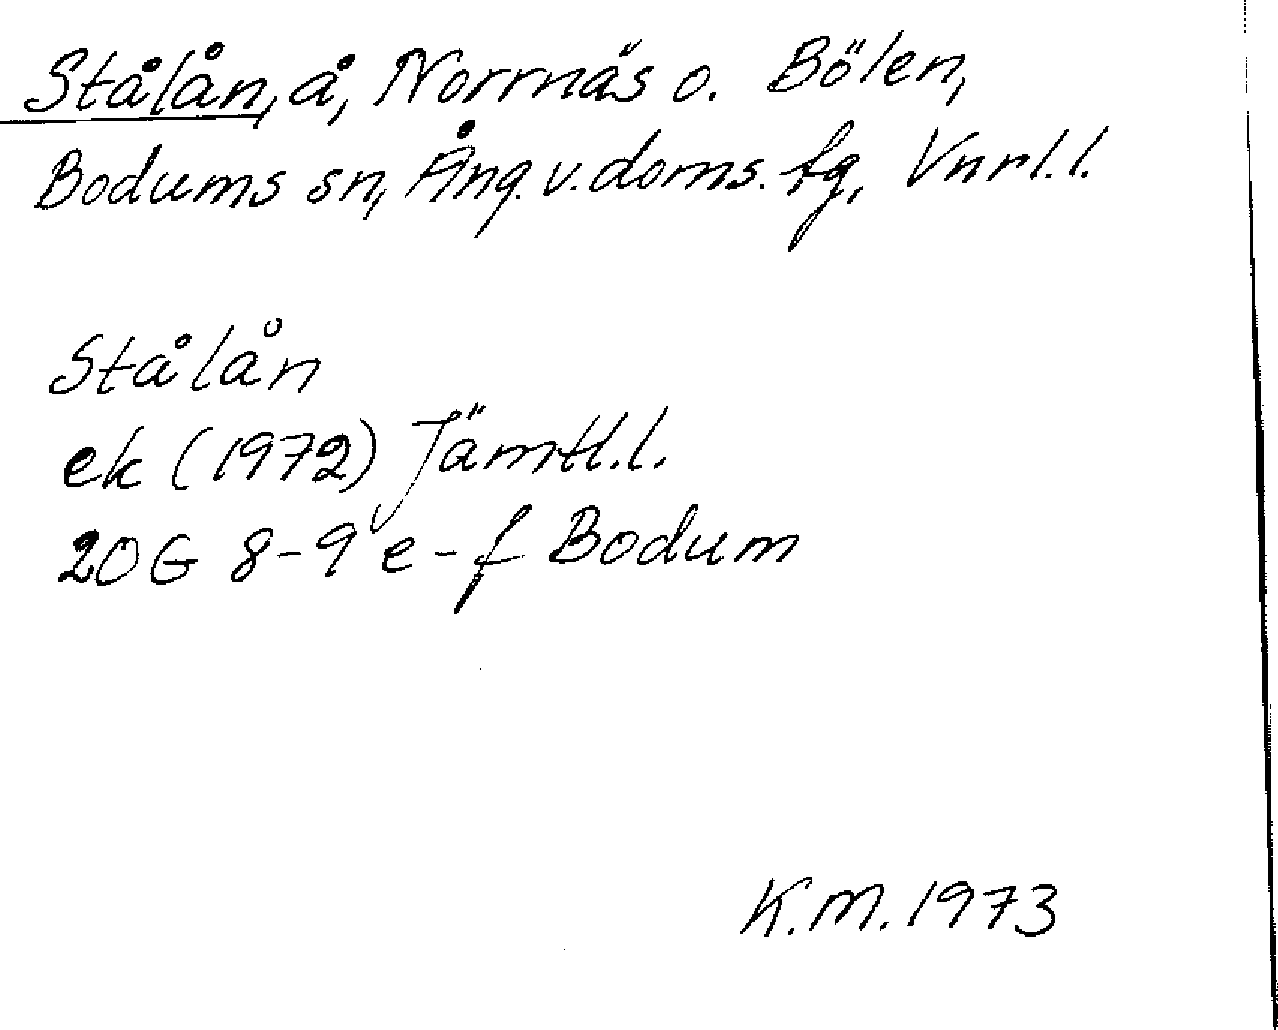 Stålån, å, Norrnäs o. Bölen,
Bodums sn, Ång. v. doms. fg, Vnrl.l.
Stålån
ek (1972) Jämtl.l.
20G 8-9 e-f Bodum
K.M. 1973